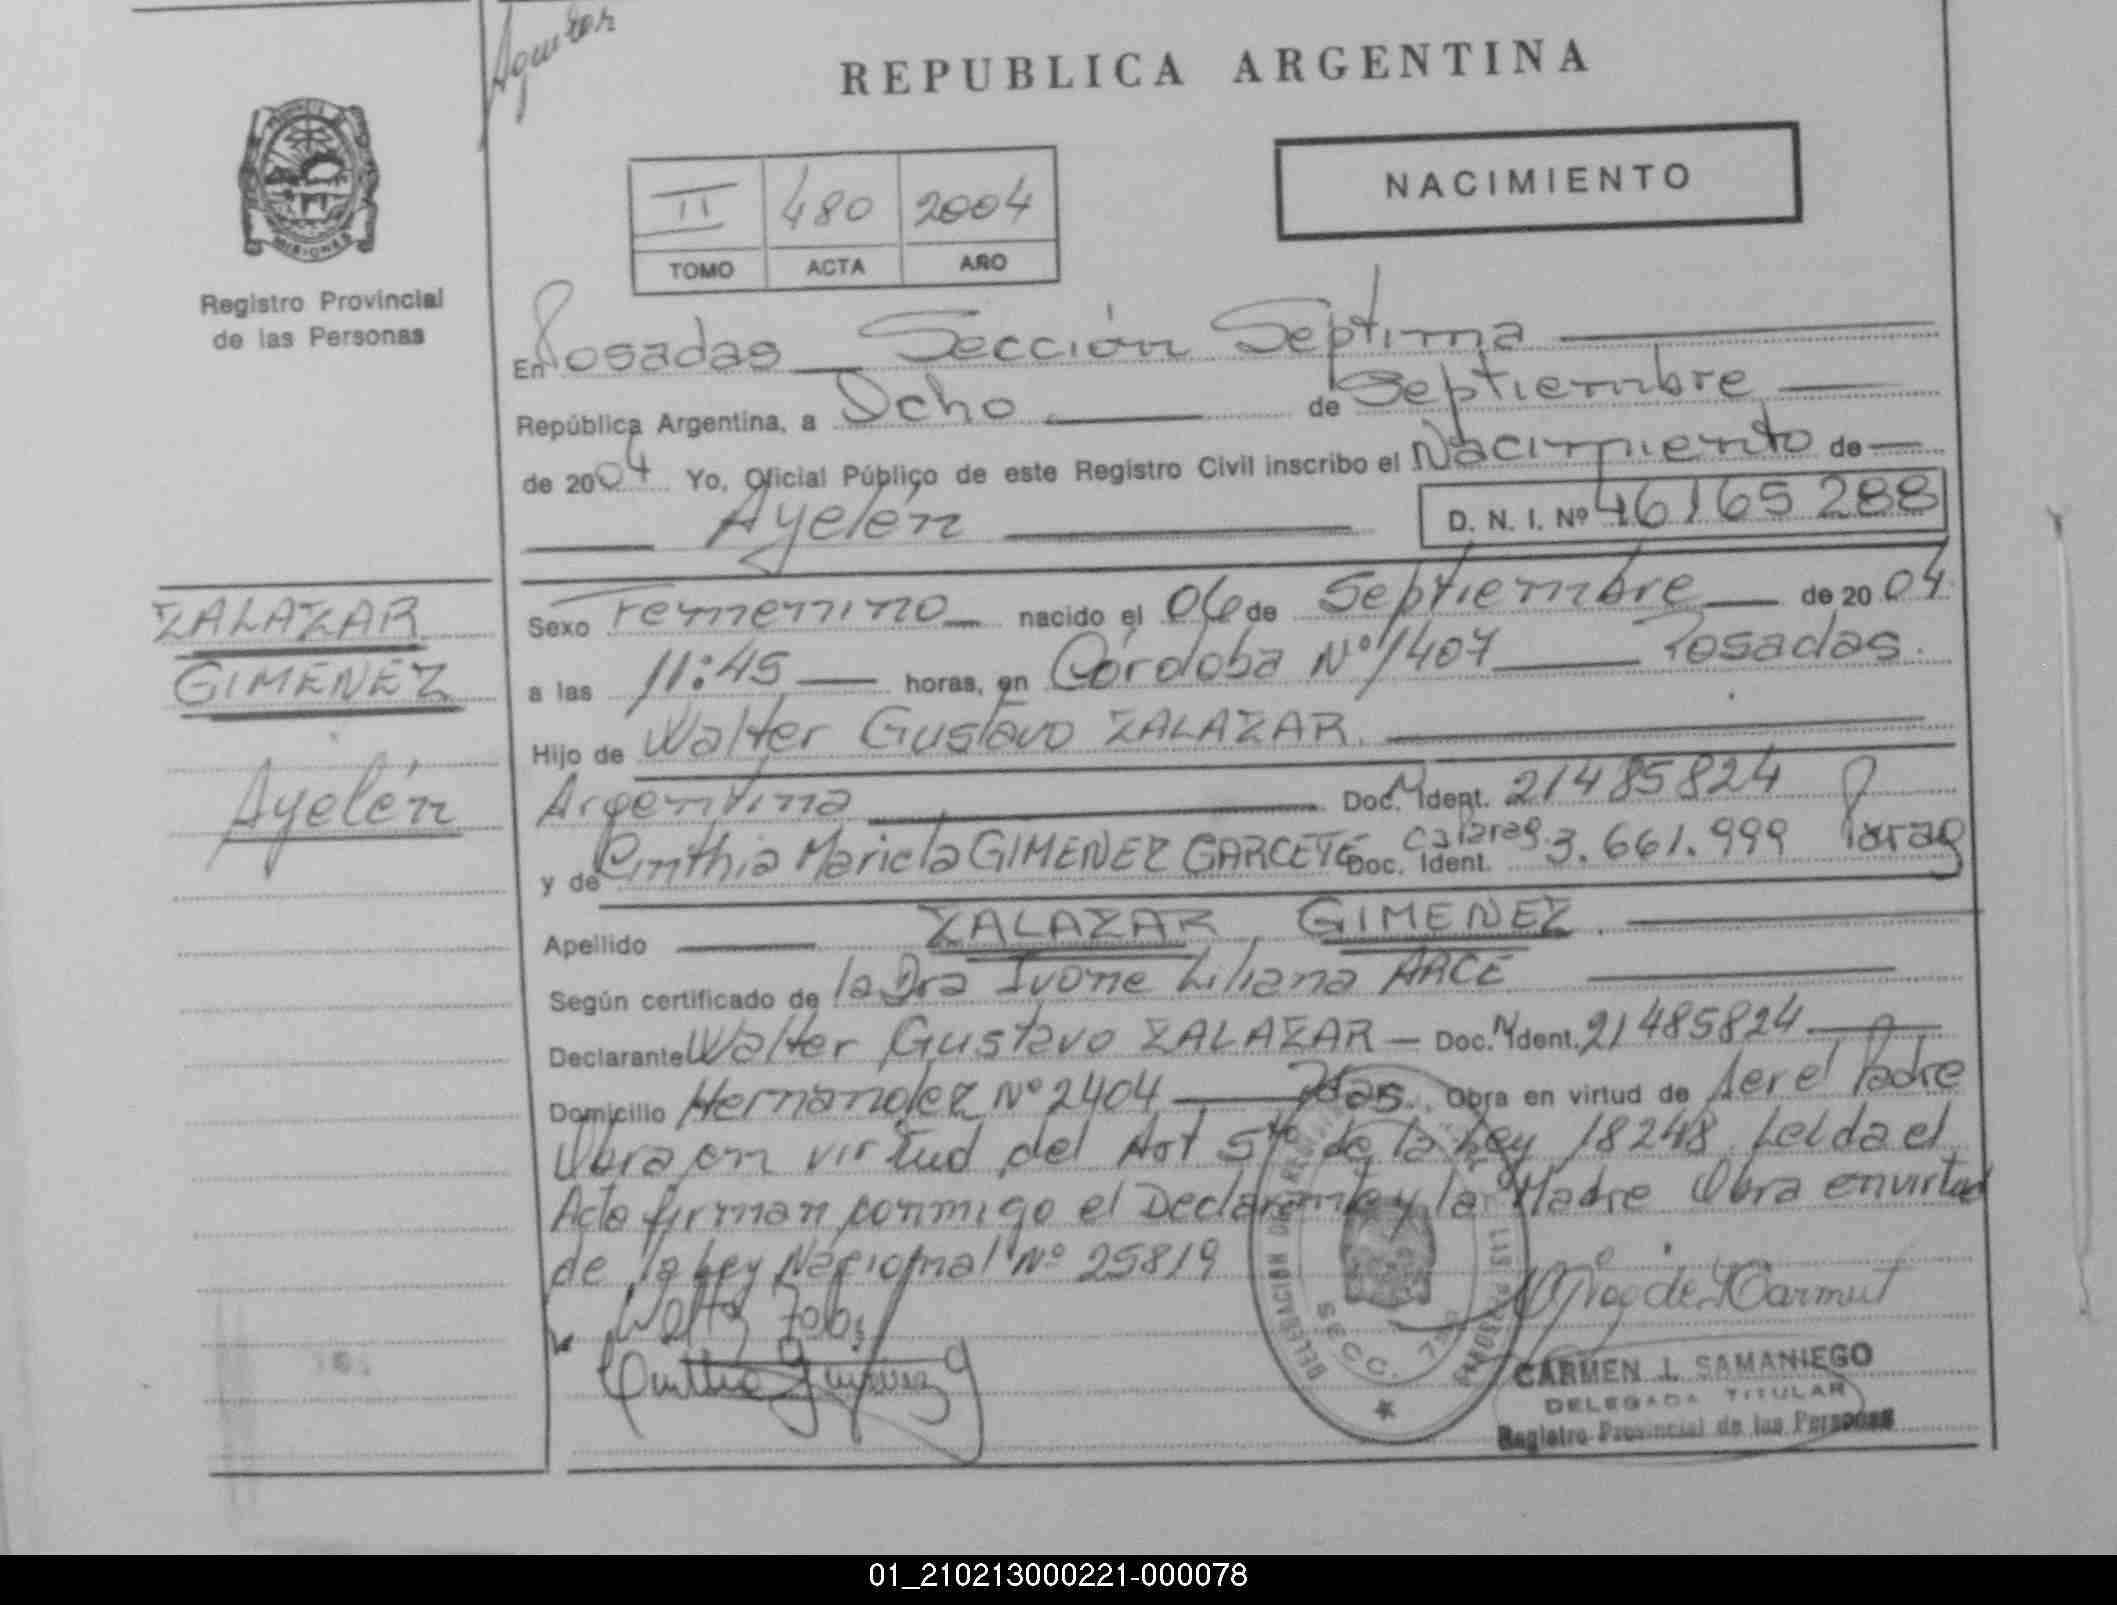 REPUBLICA ARGENTINA
MISIONES
Registro Provincial
de las Personas
II 480 2004
TOMO ACTA AÑO
NACIMIENTO
En Posadas Sección Septima
República Argentina, a Ocho de Septiembre
de 2004 Yo, Oficial Público de este Registro Civil inscribo el Nacimiento de
Ayelén D. N. I. Nº 46165 288
ZALAZAR
GIMENEZ
Ayelén
Sexo Femenino nacido el 06 de Septiembre de 2004
a las 11:45 horas, en Córdoba Nº 1407 Posadas.
Hijo de Walter Gustavo ZALAZAR.
Argentina Doc. N Ident. 21485824
y de Cinthia Mariela GIMENEZ GARCETE Doc. Ident. 3.661.999 Parag
Apellido ZALAZAR GIMENEZ.
Según certificado de la Dra Ivone Liliana ARCE
Declarante Walter Gustavo ZALAZAR — Doc. N Ident. 21485824
Domicilio Hernandez Nº 2404 Pdas. Obra en virtud de ser el Padre
Obra en virtud del Art 5to de la Ley 18248. Leida el
Acta firman conmigo el Declarante y la Madre Obra en virtud
de la Ley Nacional Nº 25819
DELEGACION DEL REGISTRO DE LAS PERSONAS
SECC. 7
CARMEN L. SAMANIEGO
DELEGADA TITULAR
Registro Provincial de las Personas
01_210213000221-000078